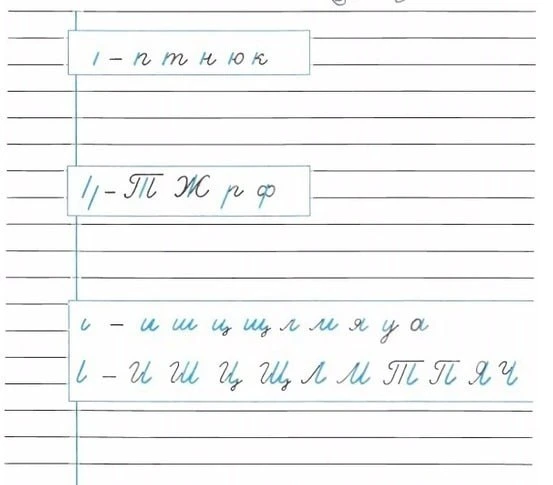 ı – п т н ю к
l ı – Т Ж р ф
ι – и ш ц щ л м я у а
l – И Ш Ц Щ Л М Т П Я Ч